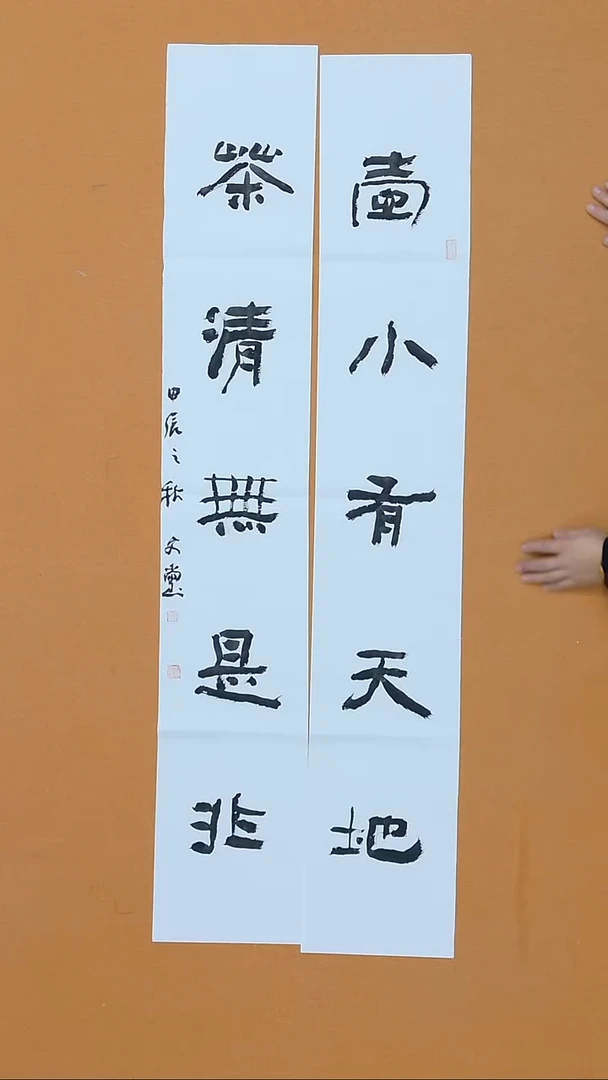 壺小有天地
茶清無是非
甲辰之秋 文党